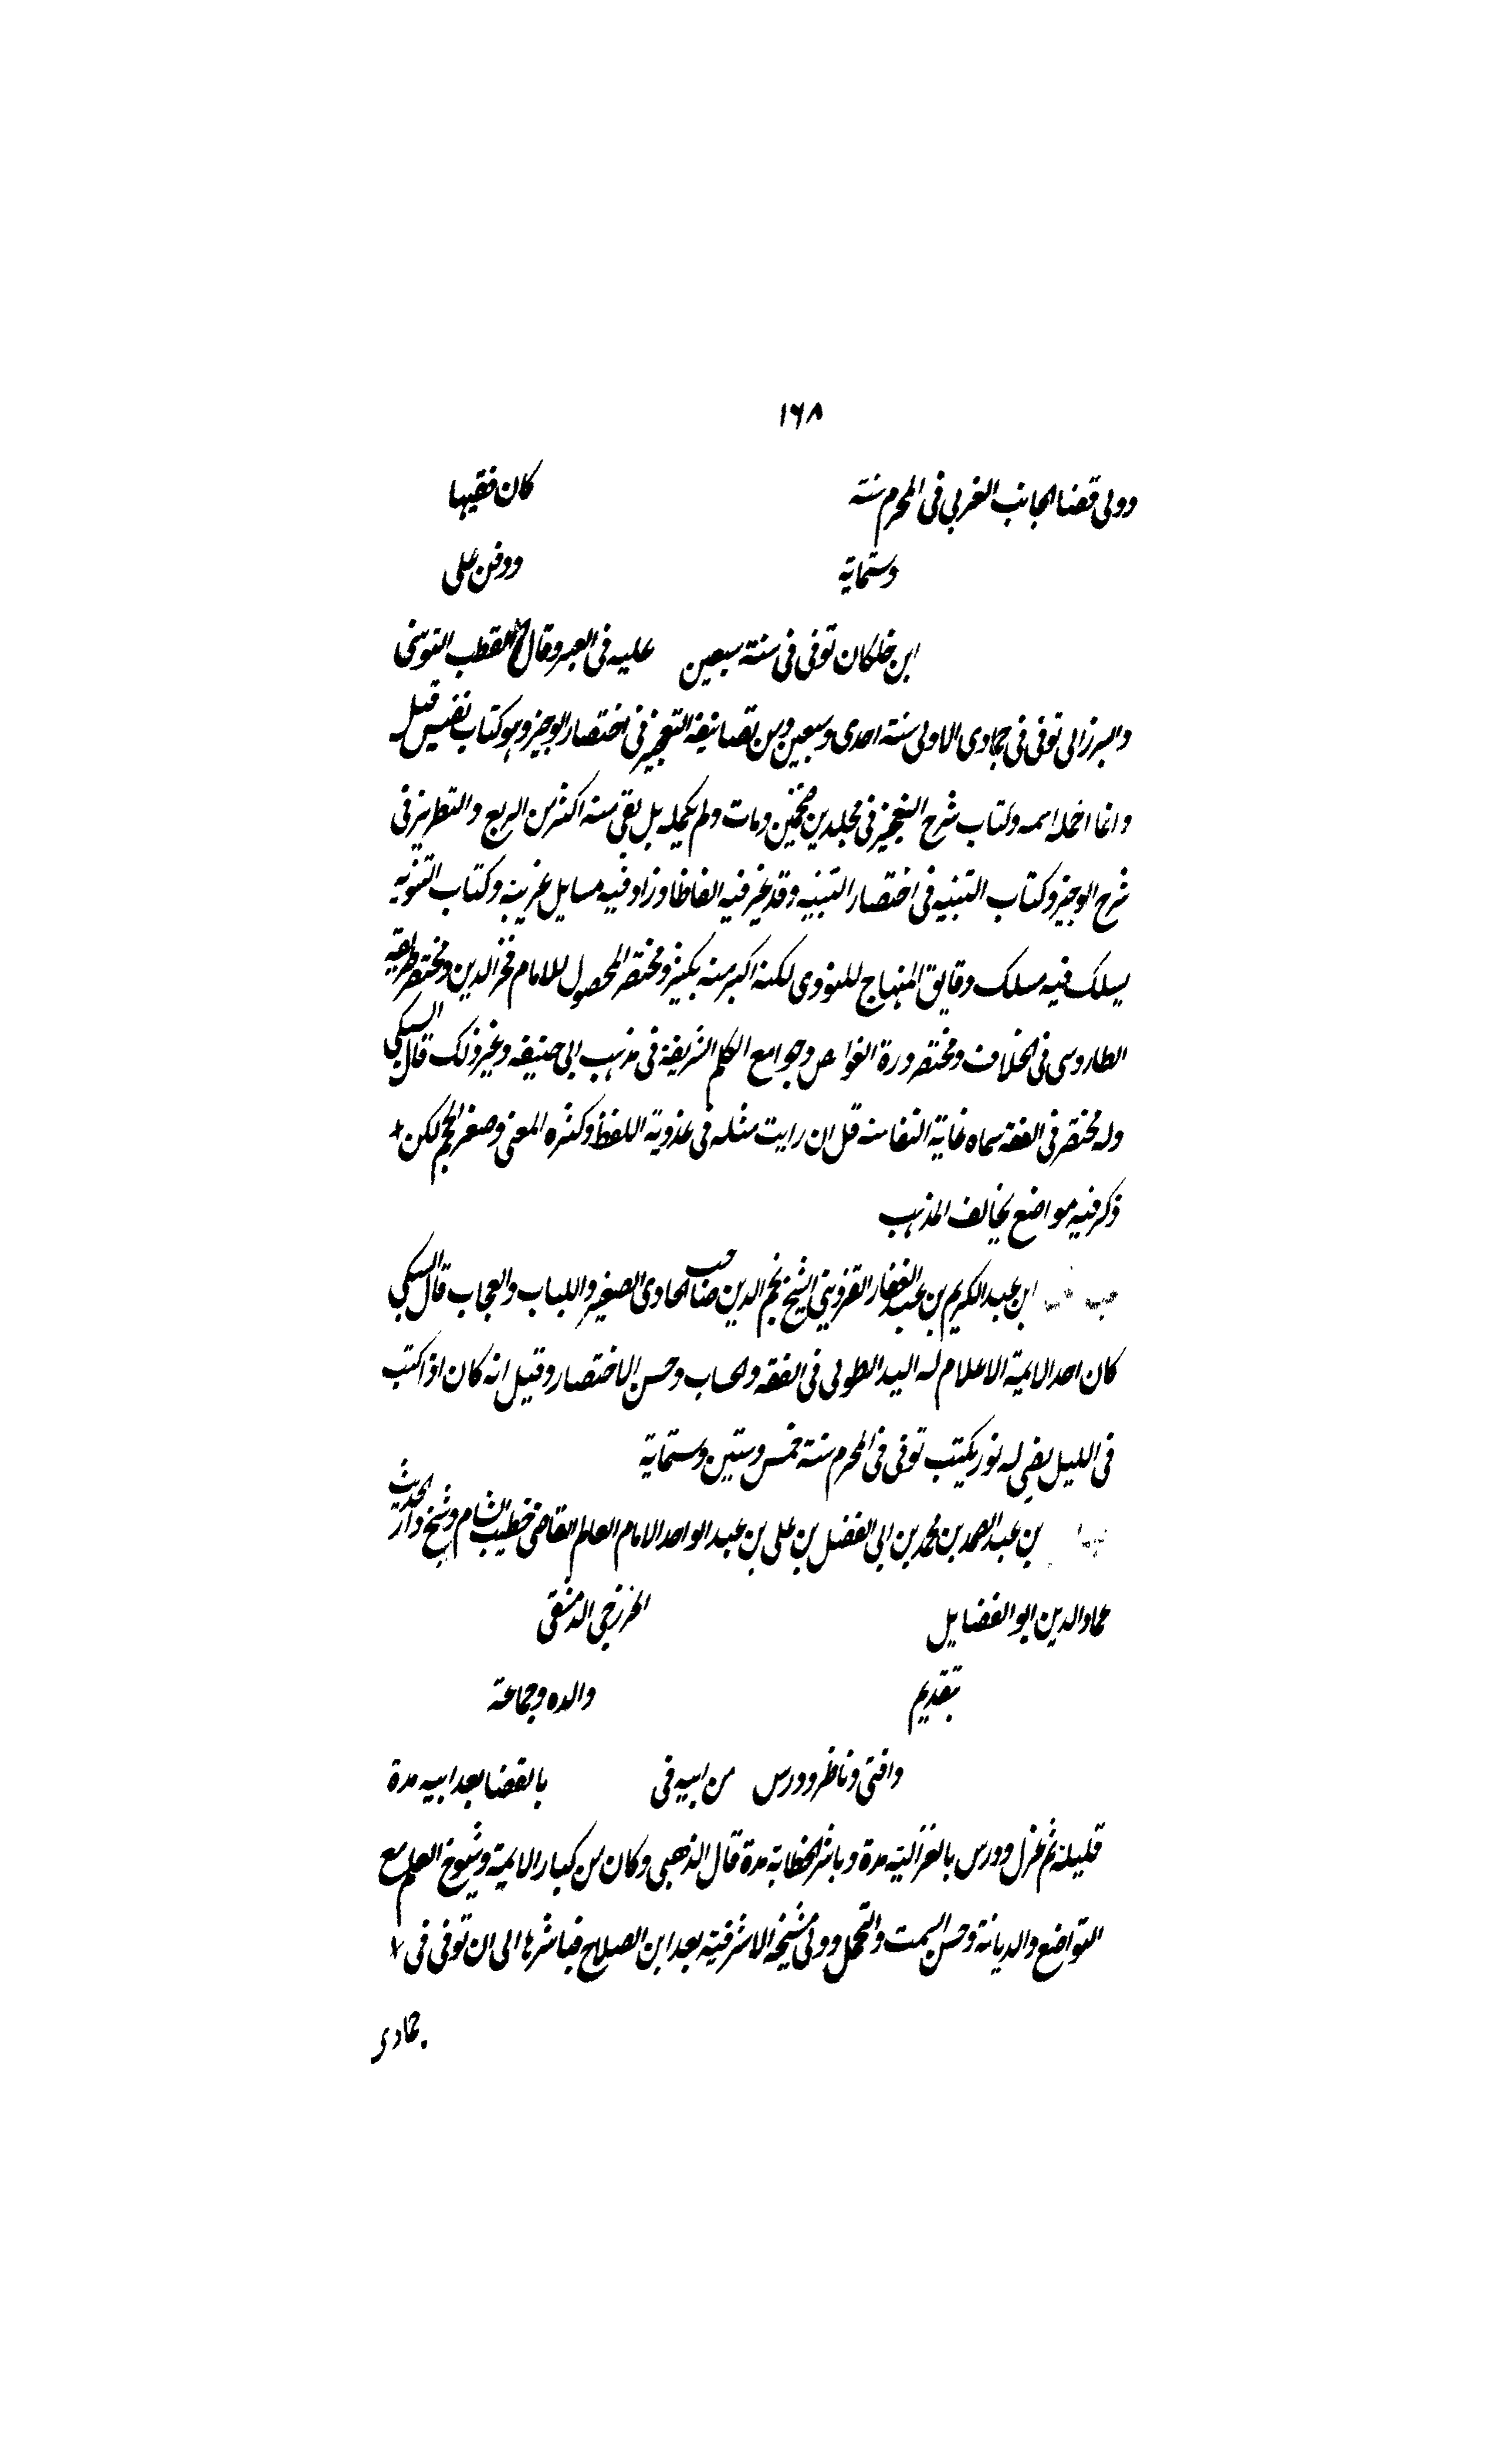 ١٦٨
وولی قضا الجانب الغربی فی المحرم سنة كان فقیها
وستمایة ودفن علی
ابن خلكان توفی فی سنة سبعین علیه فی العبر وقال القطب الیونینی
والبرزالی توفی فی جمادی الاولی سنة احدی وسبعین ومن تصانیفه التعجیز فی اختصار الوجیز وهو كتاب نفیس قیل
وانما اخمله اسمه وكتاب شرح التعجیز فی مجلدین ضخمین ومات ولم یكمله بل بقی منه اكثر من الربع والتطریز فی
شرح الوجیز وكتاب التنبیه فی اختصار التنبیه وقد غیر فیه الفاظا وزاد فیه مسایل غریبة وكتاب التنویه
یسلك فیه مسلك دقایق المنهاج للنووی لكنه اكبر منه بكثیر ومختصر المحصول للامام فخر الدین ومختصر طریقة
الطاروسی فی الخلاف ومختصر درة الغواص وجوامع الكلم الشریفة فی مذهب ابی حنیفه وغیر ذلك قال السبكی
وله مختصر فی الفقه سماه نهایة النفاسة قل ان رایت مثله فی عذوبة اللفظ وكثره المعنی وصغر الحجم لكن
ذكر فیه مواضع یخالف المذهب
ابن عبد الكریم بن عبد الغفار القزوینی الشیخ نجم الدین صاحب الحاوی الصغیر واللباب والعجاب قال السبكی
كان احد الایمة الاعلام له الید الطولی فی الفقه والحساب وحسن الاختصار وقیل انه كان اذا كتب
فی اللیل یضی له نور یكتب توفی فی المحرم سنة خمس وستین وستمایة
بن عبد الصمد بن محمد بن ابی الفضل بن علی بن عبد الواحد الامام العالم القاضی خطیب الشام وشیخ دار الحدیث
عماد الدین ابو الفضایل الخزرجی الدمشقی
بتقدیم والده وجماعة
وافتی وناظر ودرس من ابیه فی بالقضا بعد ابیه مدة
قلیلة ثم عزل ودرس بالغزالیة مدة وباشر الخطابة مدة قال الذهبی وكان من كبار الایمة وشیوخ العلم مع
التواضع والدیانة وحسن السمت والتجمل وولی مشیخة الاشرفیة بعد ابن الصلاح فباشرها الی ان توفی فی
جمادی